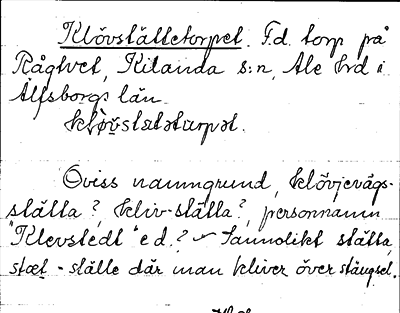 Klövstättetorpet. F.d. torp på
Rågtvet, Kilanda s:n, Ale hd i
Älfsborgs län.
Oviss namngrund, klövjevägs-
ställa?, kliv-ställa?, personnamn
"Klevstedt" e d.? Sannolikt stätta,
stæt - ställe där man kliver över stängsel.